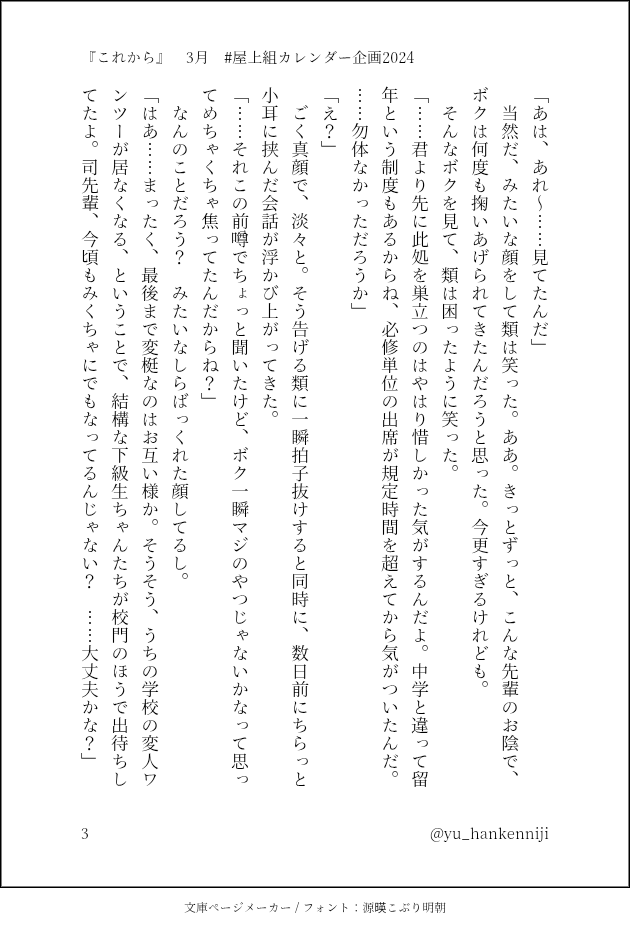 『これから』　3月　#屋上組カレンダー企画2024
「あは、あれ～……見てたんだ」
　当然だ、みたいな顔をして類は笑った。ああ。きっとずっと、こんな先輩のお陰で、
ボクは何度も掬いあげられてきたんだろうと思った。今更すぎるけれども。
　そんなボクを見て、類は困ったように笑った。
「……君より先に此処を巣立つのはやはり惜しかった気がするんだよ。中学と違って留
年という制度もあるからね、必修単位の出席が規定時間を超えてから気がついたんだ。
……勿体なかっただろうか」
「え？」
　ごく真顔で、淡々と。そう告げる類に一瞬拍子抜けすると同時に、数日前にちらっと
小耳に挟んだ会話が浮かび上がってきた。
「……それこの前噂でちょっと聞いたけど、ボク一瞬マジのやつじゃないかなって思っ
てめちゃくちゃ焦ってたんだからね？」
　なんのことだろう？　みたいなしらばっくれた顔してるし。
「はあ……まったく、最後まで変梃なのはお互い様か。そうそう、うちの学校の変人ワ
ンツーが居なくなる、ということで、結構な下級生ちゃんたちが校門のほうで出待ちし
てたよ。司先輩、今頃もみくちゃにでもなってるんじゃない？　……大丈夫かな？」
3
@yu_hankenniji
文庫ページメーカー / フォント：源暎こぶり明朝